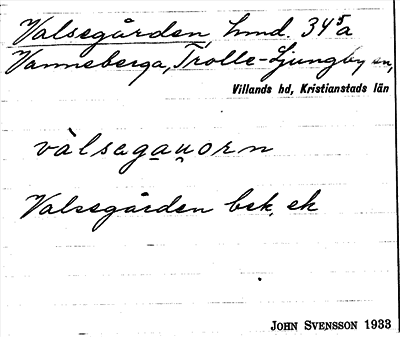 Valsegården, hmd. 34⁵a
Vanneberga, Trolle-Ljungby sn,
Villands hd, Kristianstads län
vàlsagau̯orn
Valsegården bek. ek
JOHN SVENSSON 1933